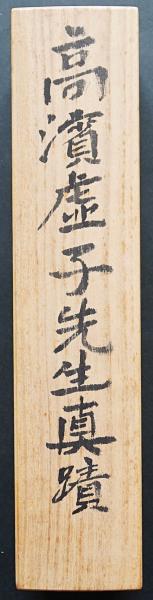 高濱虚子先生真蹟